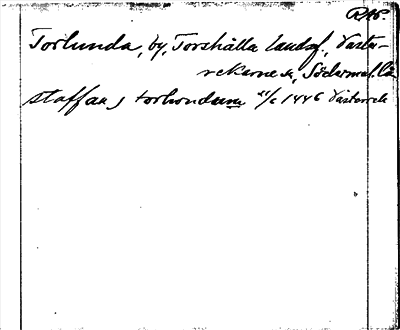 RAP.
Torlunda, by, Torshälla landsf., Väster-
rekarne hd, Södermanl. län
staffan j torlundum 1446 Västerrek